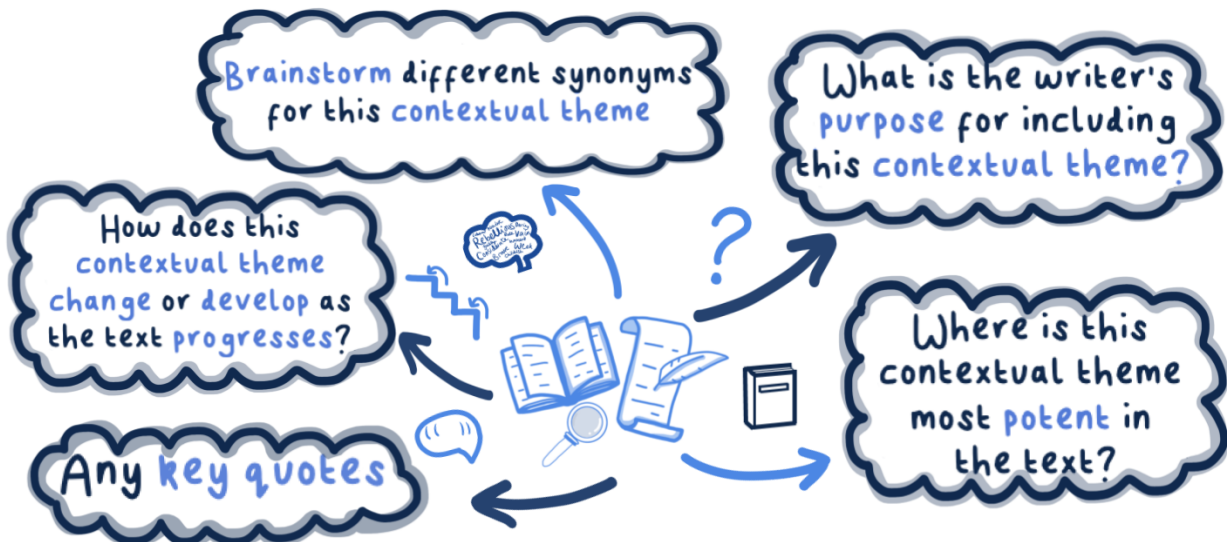 Brainstorm different synonyms
for this contextual theme
What is the writer's
purpose for including
this contextual theme?
How does this
contextual theme
change or develop as
the text progresses?
Where is this
contextual theme
most potent in
the text?
Any key quotes